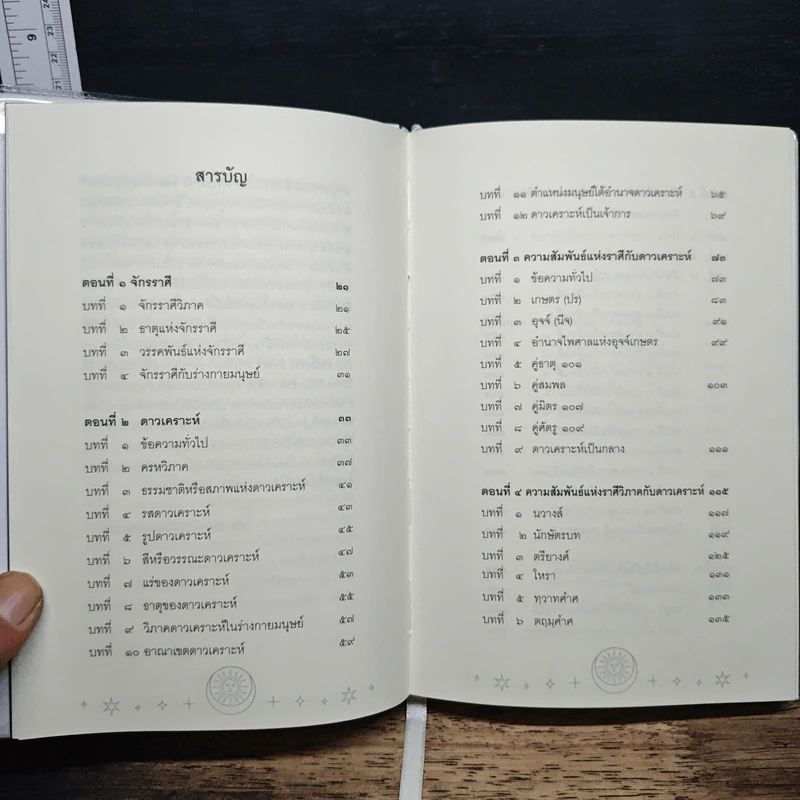 สารบัญ
ตอนที่ ๑ จักรราศี ๒๑
บทที่ ๑ จักรราศีวิภาค ๒๑
บทที่ ๒ ธาตุแห่งจักรราศี ๒๕
บทที่ ๓ วรรคพันธ์แห่งจักรราศี ๒๗
บทที่ ๔ จักรราศีกับร่างกายมนุษย์ ๓๑
ตอนที่ ๒ ดาวเคราะห์ ๓๓
บทที่ ๑ ข้อความทั่วไป ๓๓
บทที่ ๒ ครหวิภาค ๓๗
บทที่ ๓ ธรรมชาติหรือสภาพแห่งดาวเคราะห์ ๔๑
บทที่ ๔ รสดาวเคราะห์ ๔๓
บทที่ ๕ รูปดาวเคราะห์ ๔๕
บทที่ ๖ สีหรือวรรณะดาวเคราะห์ ๔๗
บทที่ ๗ แร่ของดาวเคราะห์ ๕๓
บทที่ ๘ ธาตุของดาวเคราะห์ ๕๕
บทที่ ๙ วิภาคดาวเคราะห์ในร่างกายมนุษย์ ๕๗
บทที่ ๑๐ อาณาเขตดาวเคราะห์ ๕๙
บทที่ ๑๑ ตำแหน่งมนุษย์ใต้อำนาจดาวเคราะห์ ๖๕
บทที่ ๑๒ ดาวเคราะห์เป็นเจ้าการ ๖๙
ตอนที่ ๓ ความสัมพันธ์แห่งราศีกับดาวเคราะห์ ๗๓
บทที่ ๑ ข้อความทั่วไป ๗๓
บทที่ ๒ เกษตร (ปร) ๘๓
บทที่ ๓ อุจจ์ (นีจ) ๙๑
บทที่ ๔ อำนาจไพศาลแห่งอุจจ์เกษตร ๙๙
บทที่ ๕ คู่ธาตุ ๑๐๑
บทที่ ๖ คู่สมพล ๑๐๓
บทที่ ๗ คู่มิตร ๑๐๗
บทที่ ๘ คู่ศัตรู ๑๐๙
บทที่ ๙ ดาวเคราะห์เป็นกลาง ๑๑๑
ตอนที่ ๔ ความสัมพันธ์แห่งราศีวิภาคกับดาวเคราะห์ ๑๑๕
บทที่ ๑ นวางส์ ๑๑๗
บทที่ ๒ นักษัตรบท ๑๑๙
บทที่ ๓ ตรียางศ์ ๑๒๕
บทที่ ๔ โหรา ๑๓๑
บทที่ ๕ ทฺวาทศำศ ๑๓๓
บทที่ ๖ ตฤมฺศำศ ๑๓๕
9
21
22
23
24